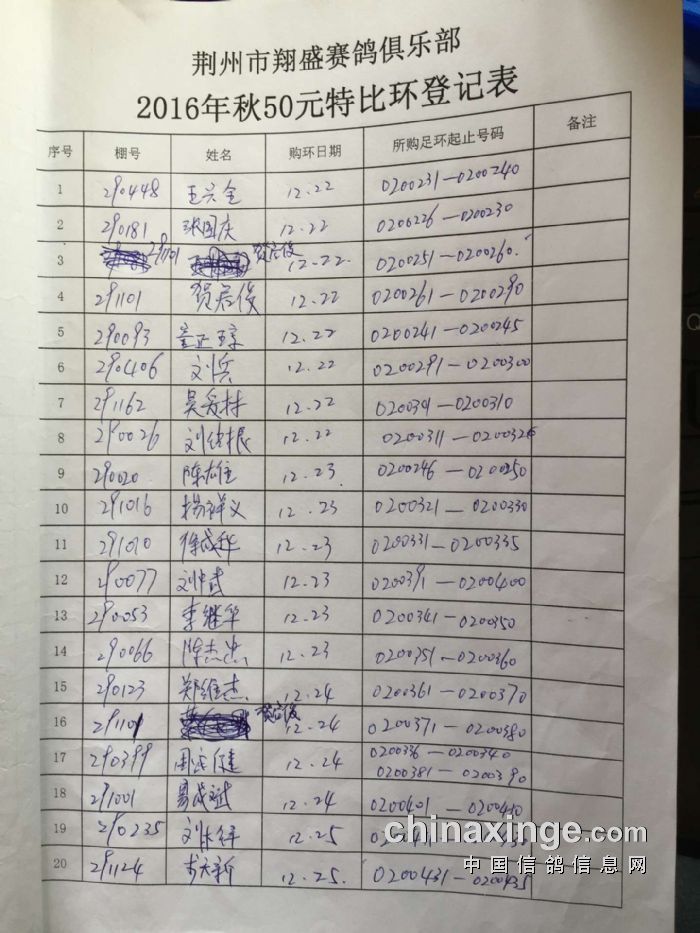 荆州市翔盛赛鸽俱乐部
2016年秋50元特比环登记表
序号 棚号 姓名 购环日期 所购足环起止号码 备注
1 290448 王兴全 12.22 0200231—0200240
2 290181 张国庆 12.22 0200226—0200230
3 291101 贺启俊 12.22 0200251—0200260
4 291101 贺启俊 12.22 0200261—0200290
5 290093 12.22 0200241—0200245
6 290406 刘兵 12.22 0200291—0200300
7 291162 12.22 020031—0200310
8 290026 12.22 0200311—020032
9 290020 陈雄 12.23 0200246—0200250
10 291016 杨祥义 12.23 0200321—0200330
11 291010 徐成 12.23 0200331—0200335
12 290077 刘中武 12.23 0200391—0200400
13 290053 李继华 12.23 0200341—0200350
14 290066 陈杰忠 12.23 0200351—0200360
15 290123 郑维杰 12.24 0200361—0200370
16 291101 贺启俊 12.24 0200371—0200380
17 290399 12.24 0200336—0200340
0200381—0200390
18 291001 成斌 12.24 0200401—0200410
19 290235 刘 12.25
20 291124 新 12.25 0200431—0200435
chinaxinge.com
中国信鸽信息网